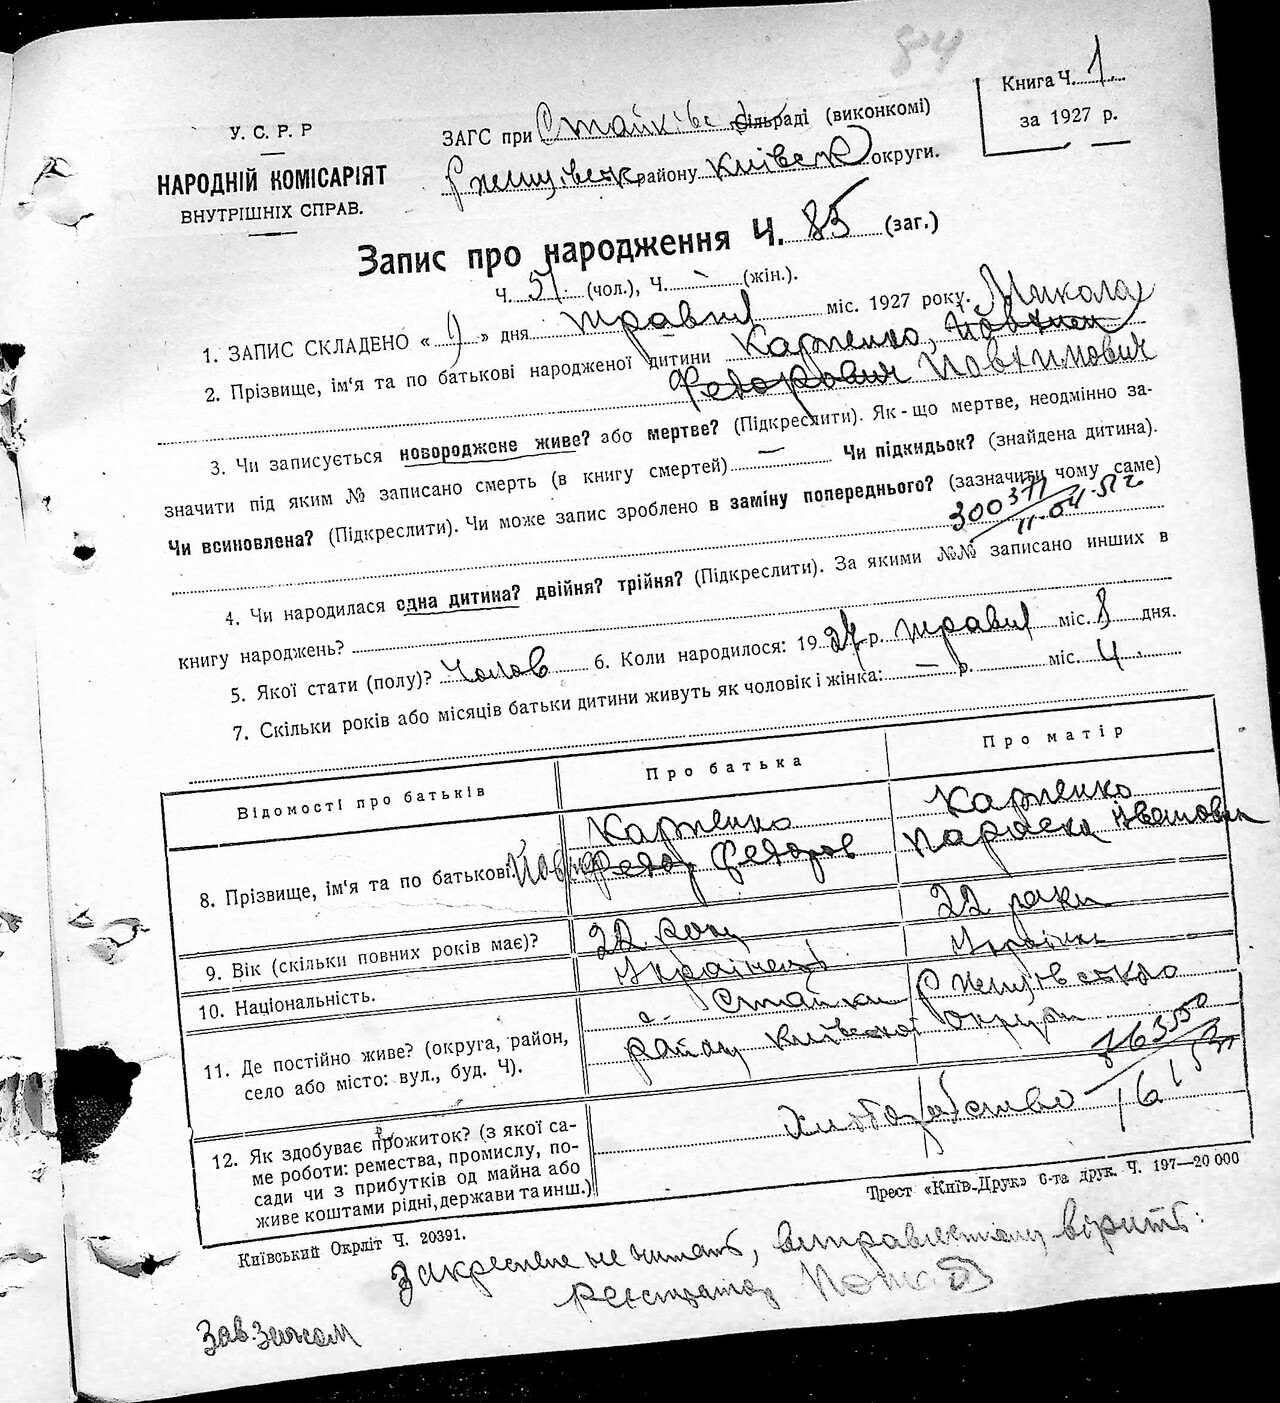 84
Книга Ч. 1
за 1927 р.
У. С. Р. Р
НАРОДНІЙ КОМІСАРІЯТ
ВНУТРІШНІХ СПРАВ.
ЗАГС при Стайківс сільраді (виконкомі)
Ржищівськ району Київськ округи.
Запис про народження Ч. 85 (заг.)
Ч. 51 (чол.), Ч. - (жін.).
1. ЗАПИС СКЛАДЕНО « » дня травня міс. 1927 року. Микола
2. Прізвище, ім'я та по батькові народженої дитини Карпенко,
Федорович Йовхимович
3. Чи записується новороджене живе? або мертве? (Підкреслити). Як-що мертве, неодмінно за-
значити під яким № записано смерть (в книгу смертей) — Чи підкидьок? (знайдена дитина).
Чи всиновлена? (Підкреслити). Чи може запис зроблено в заміну попереднього? (зазначити чому саме)
300371
11-04-51г
4. Чи народилася одна дитина? двійня? трійня? (Підкреслити). За якими №№ записано инших в
книгу народжень?
5. Якої стати (полу)? Чолов 6. Коли народилося: 1927 р. травня міс. 8 дня.
7. Скільки років або місяців батьки дитини живуть як чоловік і жінка: — р. міс. 4
Відомості про батьків
Про батька
Про матір
8. Прізвище, ім'я та по батькові.
Карпенко
Федор Федоров
Карпенко
Параска Івановна
9. Вік (скільки повних років має)?
22 року
22 роки
10. Національність.
Українець
Українка
11. Де постійно живе? (округа, район,
село або місто: вул., буд. Ч).
с. Стайки Ржищівського
району Київської округи
12. Як здобуває прожиток? (з якої са-
ме роботи: ремества, промислу, по-
сади чи з прибутків од майна або
живе коштами рідні, держави та инш.)
Хліборобство
Київський Окрліт Ч. 20391.
Трест «Київ-Друк» 6-та друк. Ч. 197—20 000
Закреслене не читать, виправленному вірить:
реєстратор
Зав. Загсом